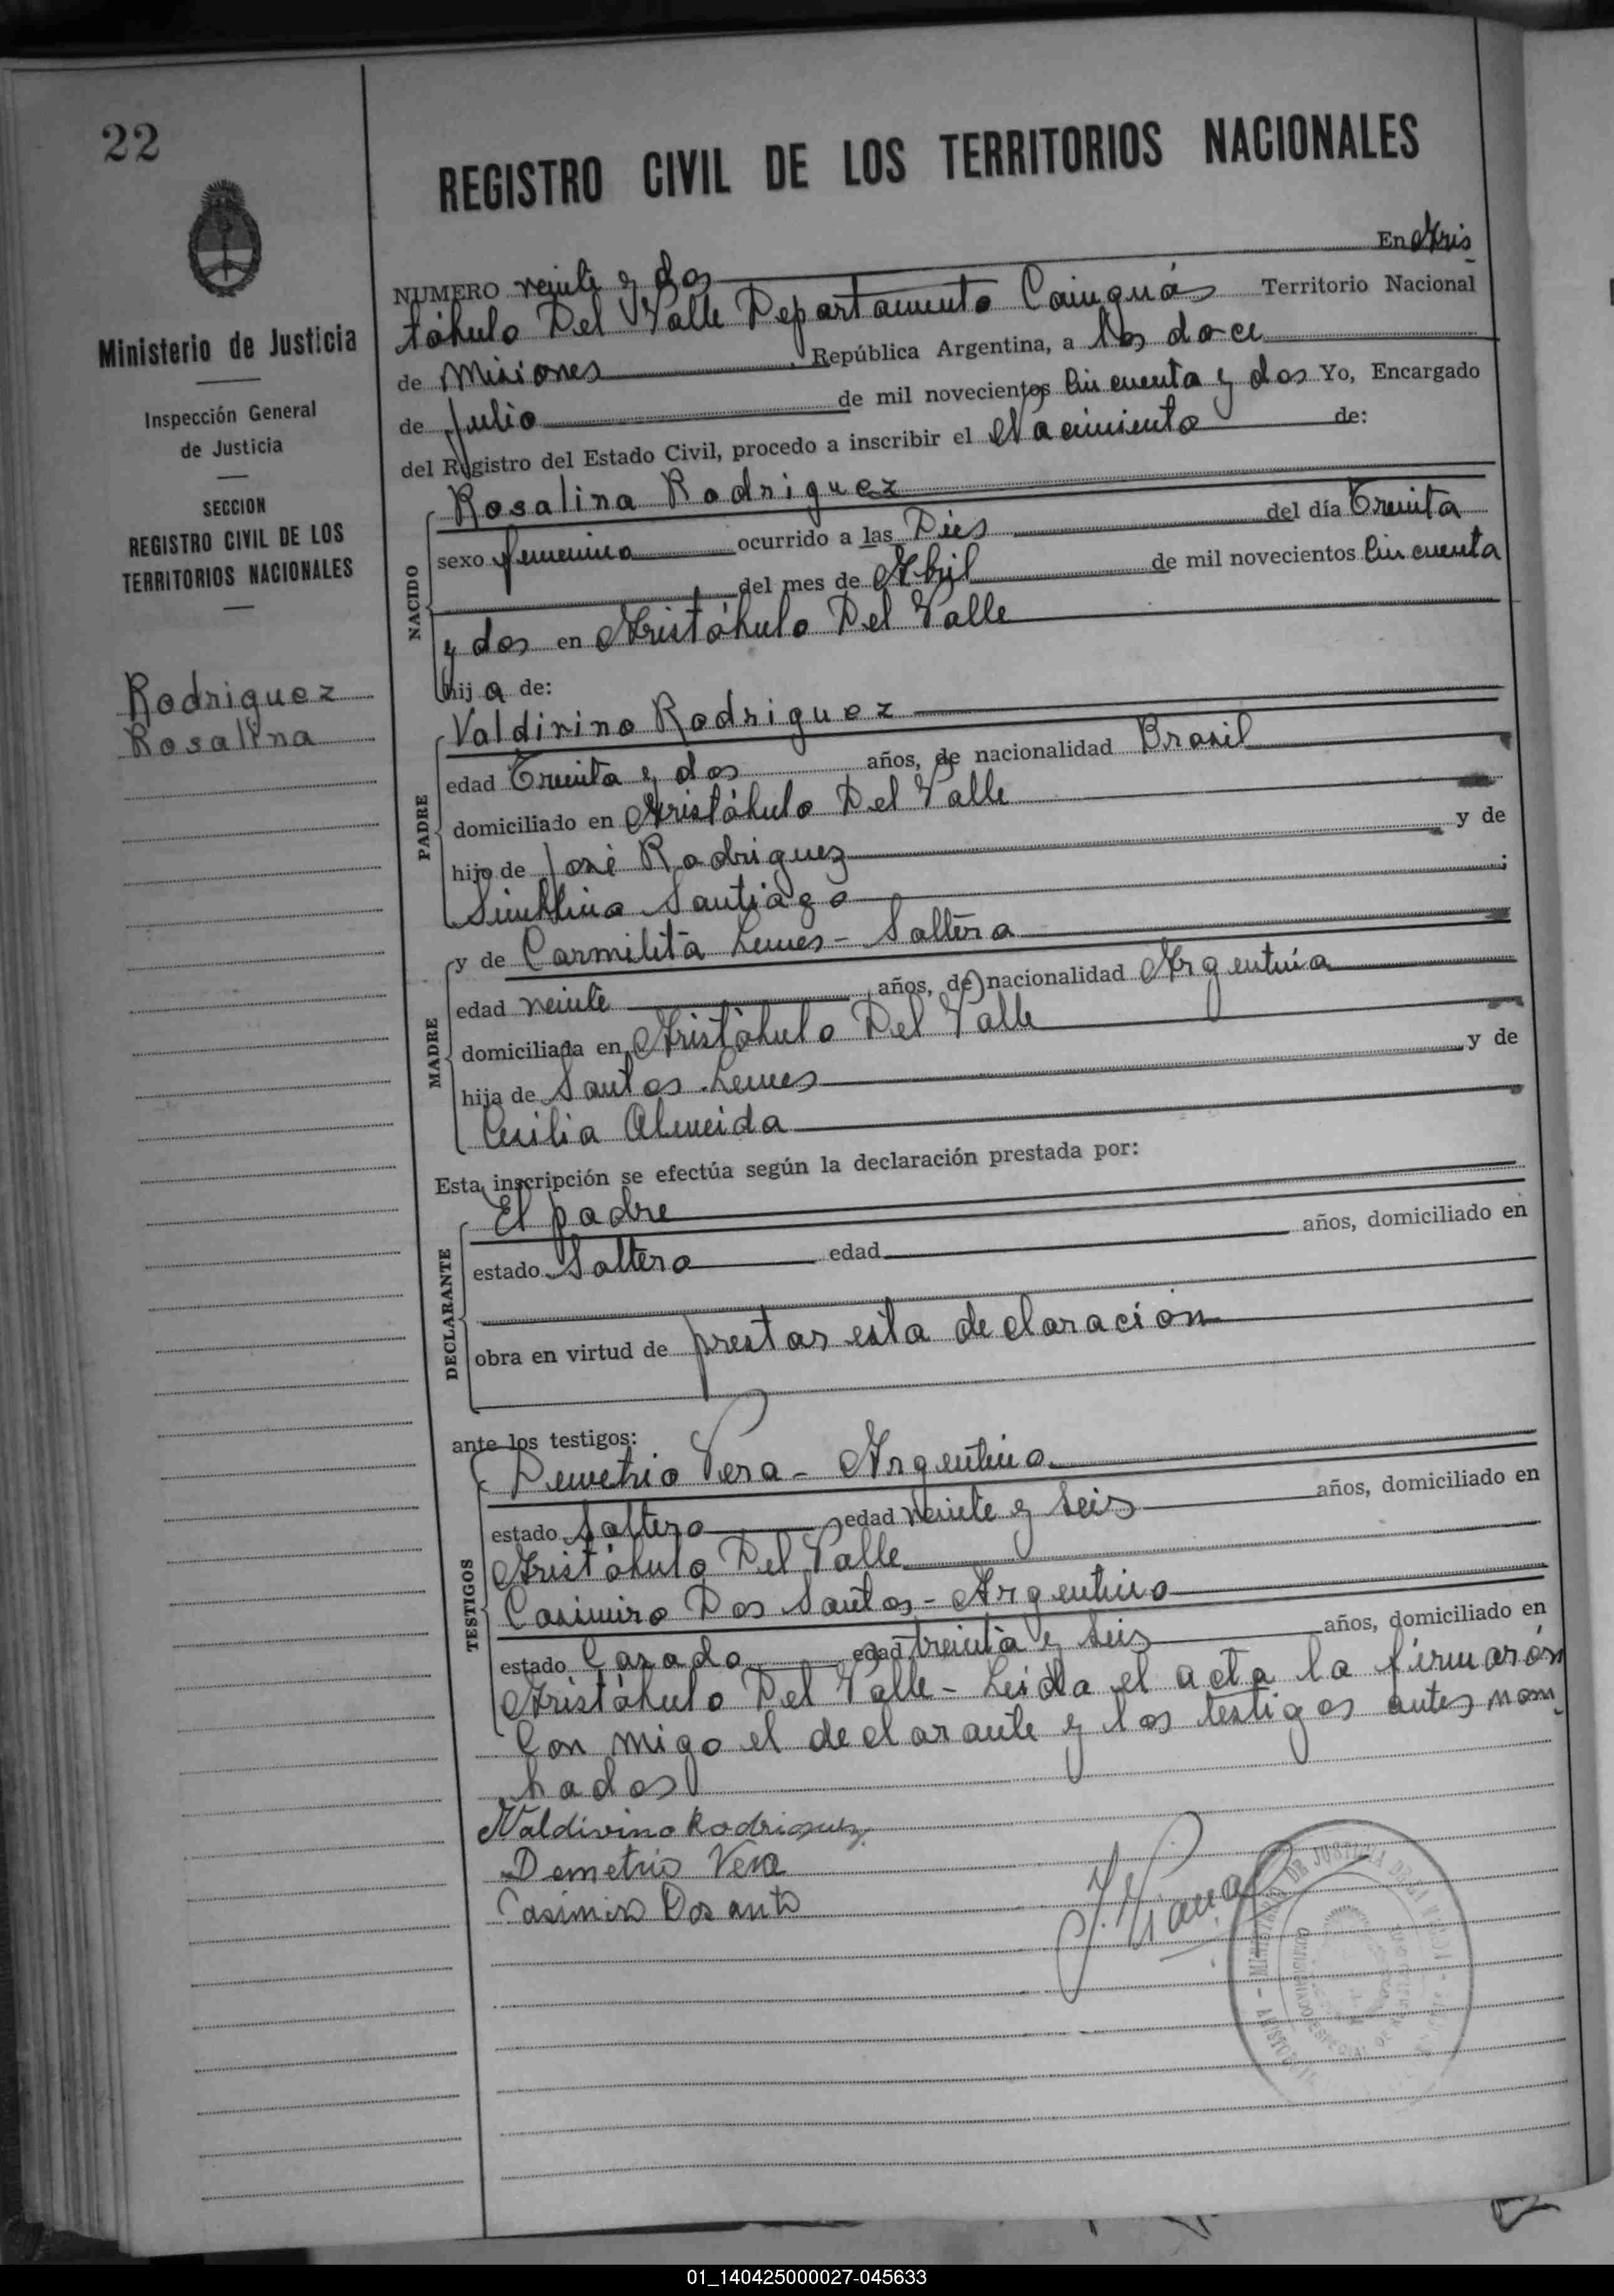 22
REGISTRO CIVIL DE LOS TERRITORIOS NACIONALES
Ministerio de Justicia
Inspección General
de Justicia
SECCION
REGISTRO CIVIL DE LOS
TERRITORIOS NACIONALES
Rodriguez
Rosalina
NUMERO veinte y dos En Aris
tóbulo Del Valle Departamento Cainguás Territorio Nacional
de Misiones, República Argentina, a los doce
de Julio de mil novecientos Cincuenta y dos Yo, Encargado
del Registro del Estado Civil, procedo a inscribir el Nacimiento de:
NACIDO
Rosalina Rodriguez
sexo femenino ocurrido a las Dies del día Treinta
del mes de Abril de mil novecientos Cincuenta
y dos en Aristóbulo Del Valle
hija de:
PADRE
Valdivino Rodriguez
edad Treinta y dos años, de nacionalidad Brasil
domiciliado en Aristóbulo Del Valle
hijo de José Rodriguez y de
Santiago
MADRE
y de Carmilita Lemes - Saltera
edad veinte años, de nacionalidad Argentina
domiciliada en Aristóbulo Del Valle
hija de Santos Lemes y de
Cecilia Almeida
Esta inscripción se efectúa según la declaración prestada por:
DECLARANTE
El padre
estado Soltero edad años, domiciliado en
obra en virtud de prestar esta declaración
ante los testigos:
TESTIGOS
Demetrio Vera - Argentino
estado Soltero edad veinete y seis años, domiciliado en
Aristóbulo Del Valle
Casimiro Dos Santos - Argentino
estado Casado edad treinta y seis años, domiciliado en
Aristóbulo Del Valle - Leida el acta la firmarón
Con migo el declarante y los testigos antes nom
bados
Valdivino Rodriguez
Demetrio Vera
Casimiro Dos anto
MINISTERIO DE JUSTICIA DE LA
01_140425000027-045633